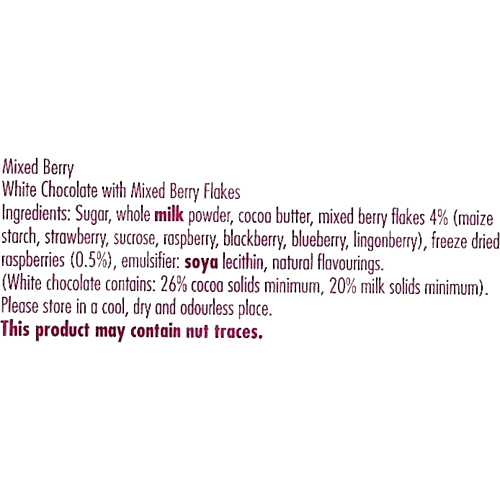 Mixed Berry
White Chocolate with Mixed Berry Flakes
Ingredients: Sugar, whole milk powder, cocoa butter, mixed berry flakes 4% (maize
starch, strawberry, sucrose, raspberry, blackberry, blueberry, lingonberry), freeze dried
raspberries (0.5%), emulsifier: soya lecithin, natural flavourings.
(White chocolate contains: 26% cocoa solids minimum, 20% milk solids minimum).
Please store in a cool, dry and odourless place.
This product may contain nut traces.